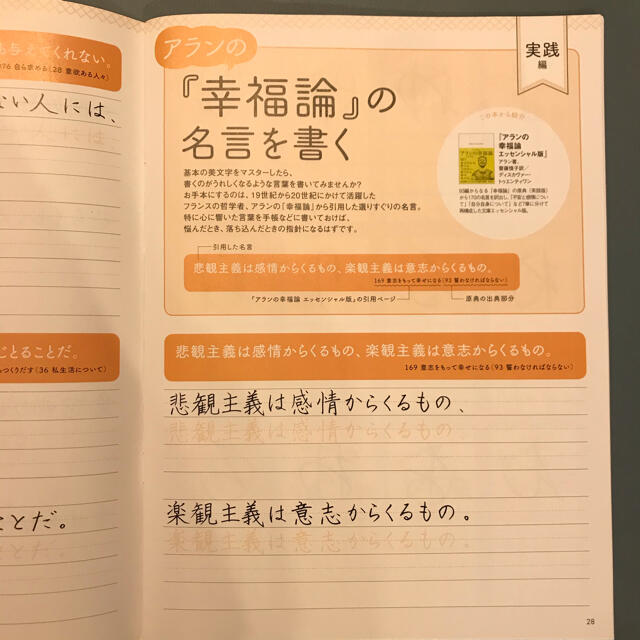 も与えてくれない。
76 自ら求める(28 意欲ある人々)
ない人には、
じとることだ。
つくりだす(36 私生活について)
ことだ。
実践
編
アランの
『幸福論』の
名言を書く
基本の美文字をマスターしたら、
書くのがうれしくなるような言葉を書いてみませんか?
お手本にするのは、19世紀から20世紀にかけて活躍した
フランスの哲学者、アランの『幸福論』から引用した選りすぐりの名言。
特に心に響いた言葉を手帳などに書いておけば、
悩んだとき、落ち込んだときの指針になるはずです。
この本から紹介
『アランの
幸福論
エッセンシャル版』
アラン著、
齋藤慎子訳/
ディスカヴァー・
トゥエンティワン
93編からなる『幸福論』の原典(英語版)
から170の名言を訳出し、「不安と感情につい
て」「自分自身について」など7章に分けて
再構成した文庫エッセンシャル版。
引用した名言
悲観主義は感情からくるもの、楽観主義は意志からくるもの。
169 意志をもって幸せになる(93 誓わなければならない)
『アランの幸福論 エッセンシャル版』の引用ページ
原典の出典部分
悲観主義は感情からくるもの、楽観主義は意志からくるもの。
169 意志をもって幸せになる(93 誓わなければならない)
悲観主義は感情からくるもの、
悲観主義は感情からくるもの、
楽観主義は意志からくるもの。
楽観主義は意志からくるもの。
28